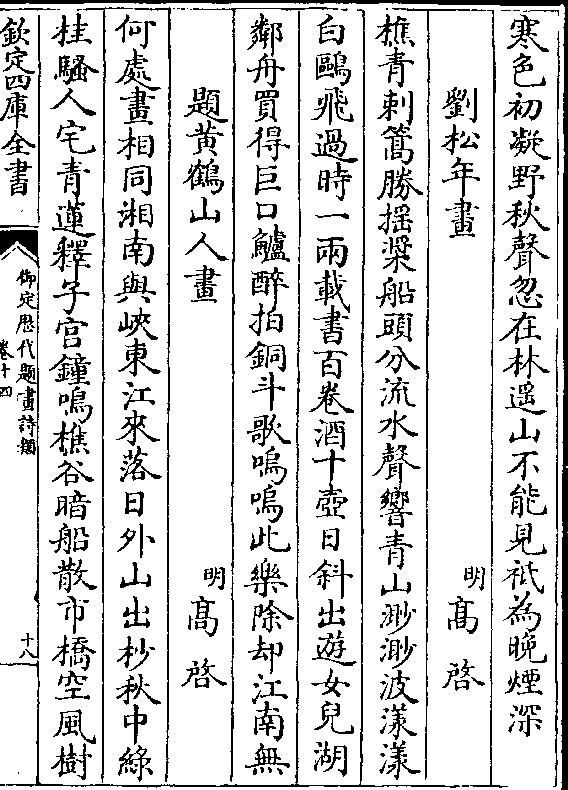 寒色初凝野秋聲忽在林遥山不能見祗為晩煙深
劉松年畫
明 髙啓
樵青刺篙勝揺槳船頭分流水聲響青山渺渺波漾漾
白鷗飛過時一兩載書百卷酒十壺日斜出遊女兒湖
鄰舟買得巨口鱸醉拍銅斗歌嗚嗚此樂除却江南無
題黄鶴山人畫
明 髙啓
何處畫相同湘南與峽東江來落日外山出杪秋中綠
桂騷人宅青蓮釋子宫鐘鳴樵谷暗船散市橋空風樹
欽定四庫全書
御定歴代題畫詩類
卷十四
十八